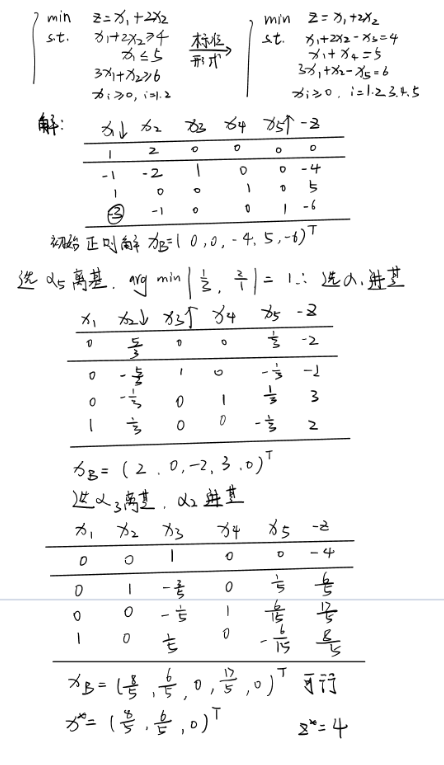 min z=x₁+2x₂
s.t. x₁+2x₂≥4
x₁≤5
3x₁+x₂≥6
xᵢ≥0, i=1.2
标准
形式
min z=x₁+2x₂
s.t. x₁+2x₂-x₃=4
x₁+x₄=5
3x₁+x₂-x₅=6
xᵢ≥0. i=1.2.3.4.5
解:
x₁↓ x₂ x₃ x₄ x₅↑ -z
1 2 0 0 0 0
-1 -2 1 0 0 -4
1 0 0 1 0 5
-3 -1 0 0 1 -6
初始正则解 x_B=(0,0,-4,5,-6)ᵀ
选α₅离基, arg min{1/3, 2/1}=1∴选α₁进基
x₁ x₂↓ x₃↑ x₄ x₅ -z
0 5/3 0 0 1/3 -2
0 -5/3 1 0 -1/3 -2
0 -1/3 0 1 1/3 3
1 1/3 0 0 -1/3 2
x_B=(2.0,-2,3,0)ᵀ
选α₃离基, α₂进基
x₁ x₂ x₃ x₄ x₅ -z
0 0 1 0 0 -4
0 1 -3/5 0 1/5 6/5
0 0 -1/5 1 6/15 17/5
1 0 1/5 0 -6/15 8/5
x_B=(8/5,6/5,0,17/5,0)ᵀ 可行
x*=(8/5,6/5,0)ᵀ z*=4